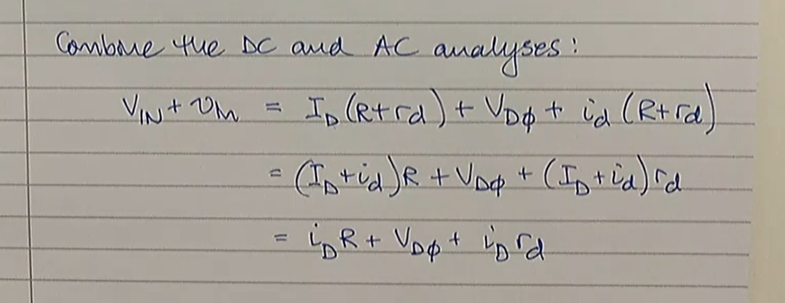 Combine the DC and AC analyses:
V_IN + v_in = I_D (R+r_d) + V_Dϕ + i_d (R+r_d)
= (I_D+i_d)R + V_Dϕ + (I_D+i_d) r_d
= i_D R + V_Dϕ + i_D r_d